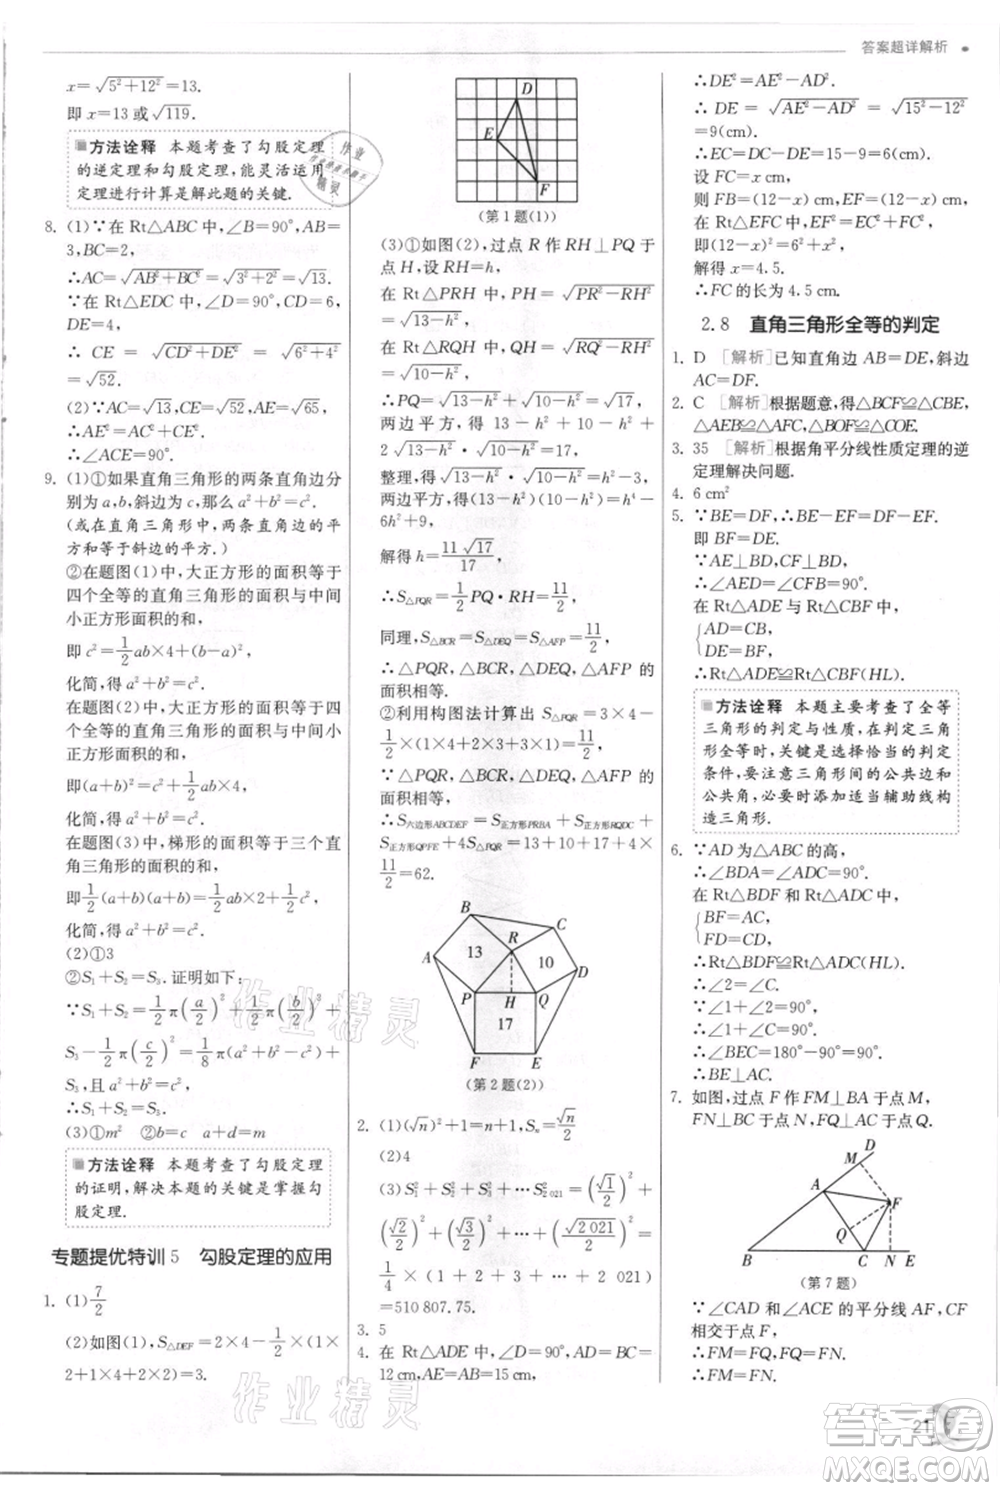 答案超详解析
x=√(5²+12²)=13.
即 x=13 或√119.
方法诠释 本题考查了勾股定理
的逆定理和勾股定理,能灵活运用
定理进行计算是解此题的关键.
8. (1)∵在 Rt△ABC 中,∠B=90°,AB=
3,BC=2,
∴AC=√(AB²+BC²)=√(3²+2²)=√13.
∵在 Rt△EDC 中,∠D=90°,CD=6,
DE=4,
∴ CE = √(CD²+DE²) = √(6²+4²)
=√52.
(2)∵AC=√13,CE=√52,AE=√65,
∴AE²=AC²+CE².
∴∠ACE=90°.
9. (1)①如果直角三角形的两条直角边分
别为 a,b,斜边为 c,那么 a²+b²=c².
(或在直角三角形中,两条直角边的平
方和等于斜边的平方.)
②在题图(1)中,大正方形的面积等于
四个全等的直角三角形的面积与中间
小正方形面积的和,
即 c²=1/2 ab×4+(b-a)²,
化简,得 a²+b²=c².
在题图(2)中,大正方形的面积等于四
个全等的直角三角形的面积与中间小
正方形面积的和,
即(a+b)²=c²+1/2 ab×4,
化简,得 a²+b²=c².
在题图(3)中,梯形的面积等于三个直
角三角形的面积的和,
即1/2(a+b)(a+b)=1/2 ab×2+1/2 c²,
化简,得 a²+b²=c².
(2)①3
②S₁+S₂=S₃.证明如下:
∵S₁+S₂=1/2 π(a/2)²+1/2 π(b/2)²+
S₃-1/2 π(c/2)²=1/8 π(a²+b²-c²)+
S₃,且 a²+b²=c²,
∴S₁+S₂=S₃.
(3)①m² ②b=c a+d=m
方法诠释 本题考查了勾股定理
的证明,解决本题的关键是掌握勾
股定理.
专题提优特训 5 勾股定理的应用
1. (1)7/2
(2)如图(1),S△DEF=2×4-1/2×(1×
2+1×4+2×2)=3.
D
E
F
(第 1 题(1))
(3)①如图(2),过点 R 作 RH⊥PQ 于
点 H,设 RH=h,
在 Rt△PRH 中,PH=√(PR²-RH²)
=√(13-h²),
在 Rt△RQH 中,QH =
√(RQ²-RH²)=√(10-h²),
∴PQ=√(13-h²)+√(10-h²)=√17,
两边平方,得 13-h²+10-h²+
2√(13-h²)·√(10-h²)=17,
整理,得√(13-h²)·√(10-h²)=h²-3,
两边平方,得(13-h²)(10-h²)=h⁴-
6h²+9,
解得 h=11√17/17,
∴S△PQR=1/2 PQ·RH=11/2,
同理,S△BCR=S△DEQ=S△AFP=11/2,
∴△PQR,△BCR,△DEQ,△AFP 的
面积相等.
②利用构图法计算出 S△PQR=3×4-
1/2×(1×4+1×3+2×3)=11/2,
∵△PQR,△BCR,△DEQ,△AFP 的
面积相等,
∴S六边形ABCDEF=S正方形PRBA+S正方形RQDC+
S正方形QPFE+4S△PQR=13+10+17+4×
11/2=62.
B
C
R
A
13
10
D
P
H
Q
17
F
E
(第 2 题(2))
2. (1)(√n)²+1=n+1,Sₙ=√n/2
(2)4
(3)S₁²+S₂²+S₃²+…+S²₂ ₀₂₁=(√1/2)²+
(√2/2)²+(√3/2)²+…+(√2 021/2)²=
1/4 × (1 + 2 + 3 + … + 2 021)
=510 807.75.
3. 5
4. 在 Rt△ADE 中,∵∠D=90°,AD=BC=
12 cm,AE=AB=15 cm,
∴DE²=AE²-AD².
∴ DE = √(AE²-AD²) = √(15²-12²)
=9(cm).
∴CE=DC-DE=15-9=6(cm).
设 FC=x(cm),
则 FB=(12-x)cm,EF=(12-x)cm,
在 Rt△EFC 中,EF²=EC²+FC²,
即(12-x)²=6²+x²,
解得 x=4.5.
∴FC 的长为 4.5 cm.
2.8 直角三角形全等的判定
1. D [解析]已知直角边 AB=DE,斜边
AC=DF.
2. C [解析]根据题意,得△BCF≌△CBE,
△AEB≌△AFC,△BOF≌△COE.
3. 35 [解析]根据角平分线性质定理的逆
定理解决问题.
4. 6 cm²
5. ∵BE=DF,∴BE-EF=DF-EF.
即 BF=DE.
∵AE⊥BD,CF⊥BD,
∴∠AED=∠CFB=90°.
在 Rt△ADE 与 Rt△CBF 中,
{AD=CB,
DE=BF,
∴Rt△ADE≌Rt△CBF(HL).
方法诠释 本题主要考查了全等
三角形的判定与性质,在判定三角
形全等时,关键是选择恰当的判定
条件,要注意三角形间的公共边和
公共角,必要时添加适当辅助线构
造三角形.
6. ∵AD 为△ABC 的高,
∴∠BDA=∠ADC=90°.
在 Rt△BDF 和 Rt△ADC 中,
{BF=AC,
FD=CD,
∴Rt△BDF≌Rt△ADC(HL).
∴∠2=∠C.
∵∠1+∠2=90°,
∴∠1+∠C=90°.
∴∠BEC=180°-90°=90°.
∴BE⊥AC.
7. 如图,过点 F 作 FM⊥BA于点 M,
FN⊥BC于点 N,FQ⊥AC于点 Q.
D
M
A
F
Q
B
C
N
E
(第 7 题)
∵∠CAD 和∠ACE 的平分线 AF,CF
相交于点 F,
∴FM=FQ,FQ=FN.
∴FM=FN.
21
作业精灵
作业精灵
答案圈
MXQE.COM